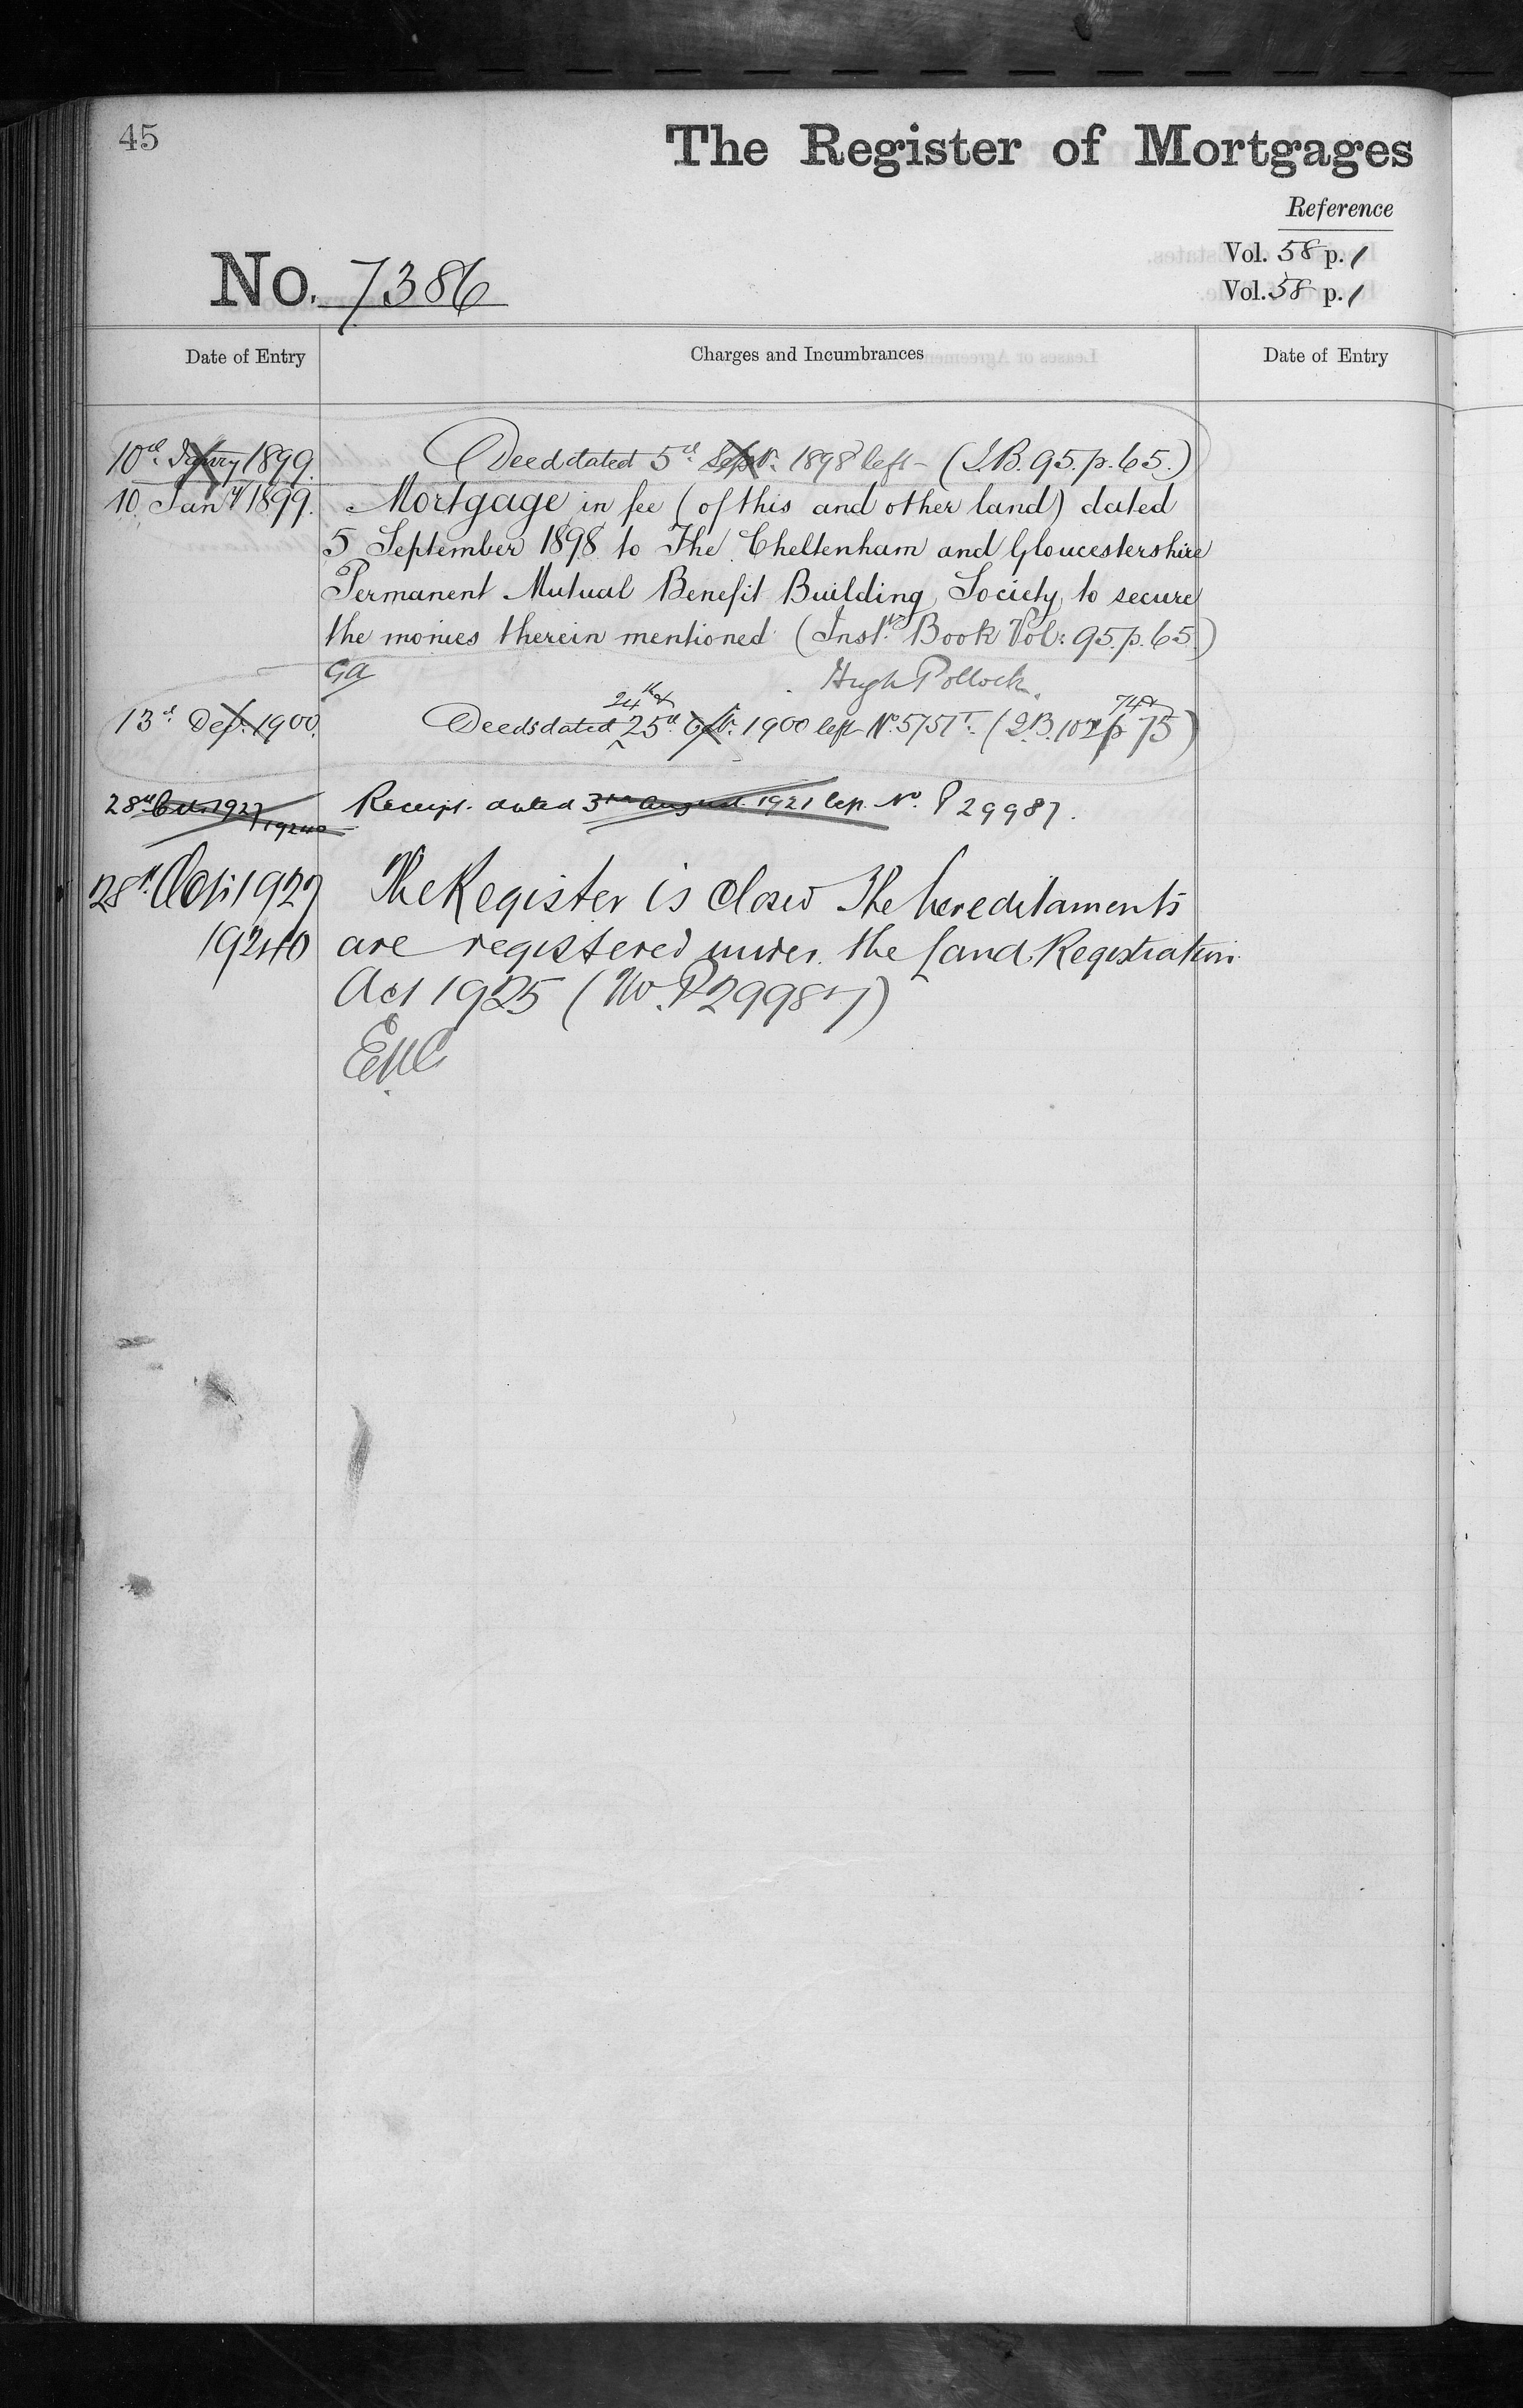 45
The Register of Mortgages
Reference
Vol. 58 p. 1
Vol. 58 p. 1
No. 7386
Date of Entry
Charges and Incumbrances
Date of Entry
10th Janry 1899. Deed dated 5th Sept. 1898 left - (I.B. 95. p. 65.)
10 Jany 1899. Mortgage in fee (of this and other land) dated
5 September 1898 to The Cheltenham and Gloucestershire
Permanent Mutual Benefit Building Society to secure
the monies therein mentioned (Instt. Book Vol: 95. p. 65.)
GA Hugh Pollock.
24th & 74 &
13th Dec. 1900. Deeds dated 25th Octr. 1900 left No. 5751T. (I.B. 102 p 75)
28th Oct. 1927 Receipt dated 3rd August 1921 left No. P 29987.
19240
28th Oct: 1927 The Register is closed The hereditaments
19240 are registered under the Land Registration
Act 1925 (No. P29987)